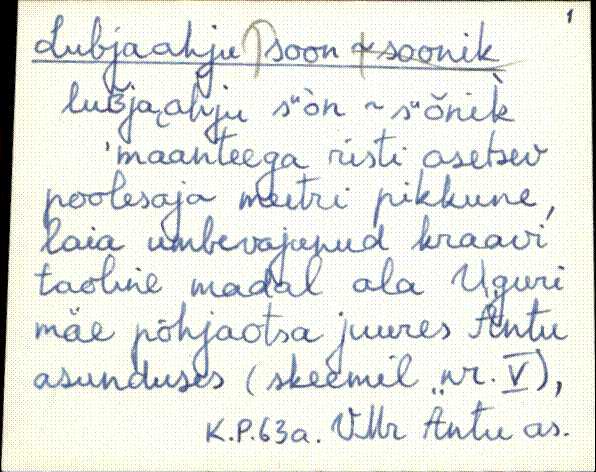 1
Lubjaahju soon ~ soonik
luʙja͔ahju s"òn ~ s"ŏnik̀
'maanteega risti asetsev
poolesaja meetri pikkune,
laia umbevajunud kraavi
taoline madal ala Uguri
mäe põhjaotsa juures Äntu
asunduses (skeemil nr. V),
K.P.63a. VMr Äntu as.